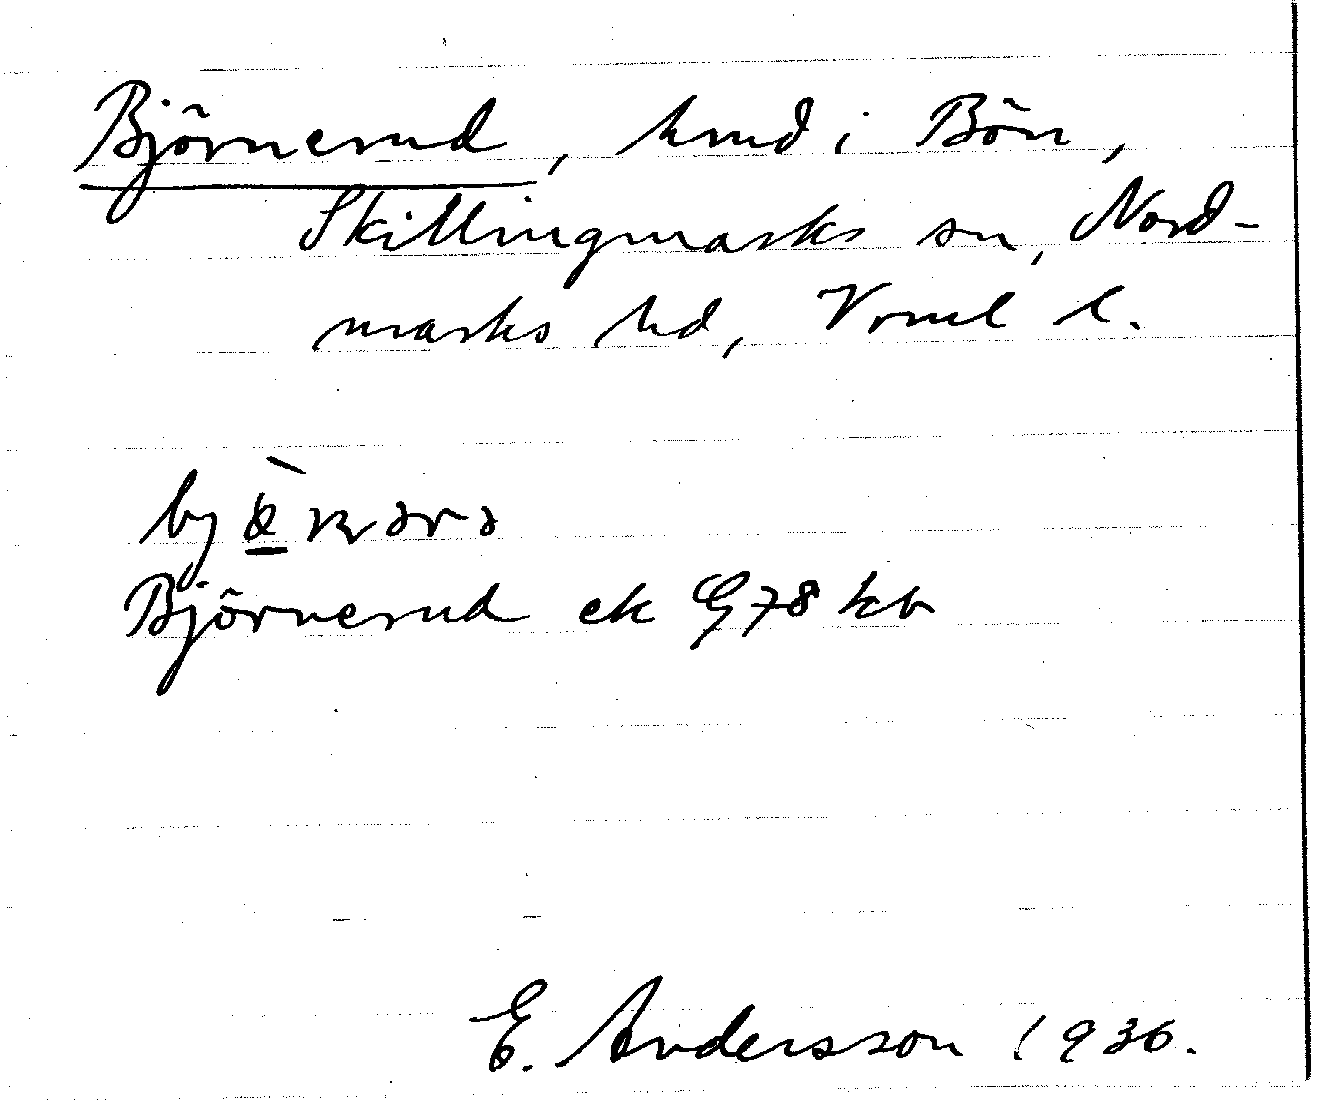 Björnerud, hmd i Bön,
Skillingmarks sn, Nord-
marks hd, Vrml l.
Björnerud ek G78 kb
E. Andersson 1936.